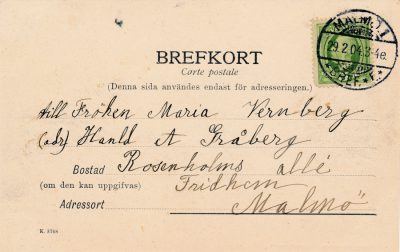 MALMÖ 1
29.2.04.3-4e.
BREFKORT
Carte postale
(Denna sida användes endast för adresseringen.)
till Fröken Maria Vernberg
(adr) Hanld A Gråberg
Bostad Rosenholms allé
(om den kan uppgifvas) Fridhem
Adressort Malmö
K. 8768